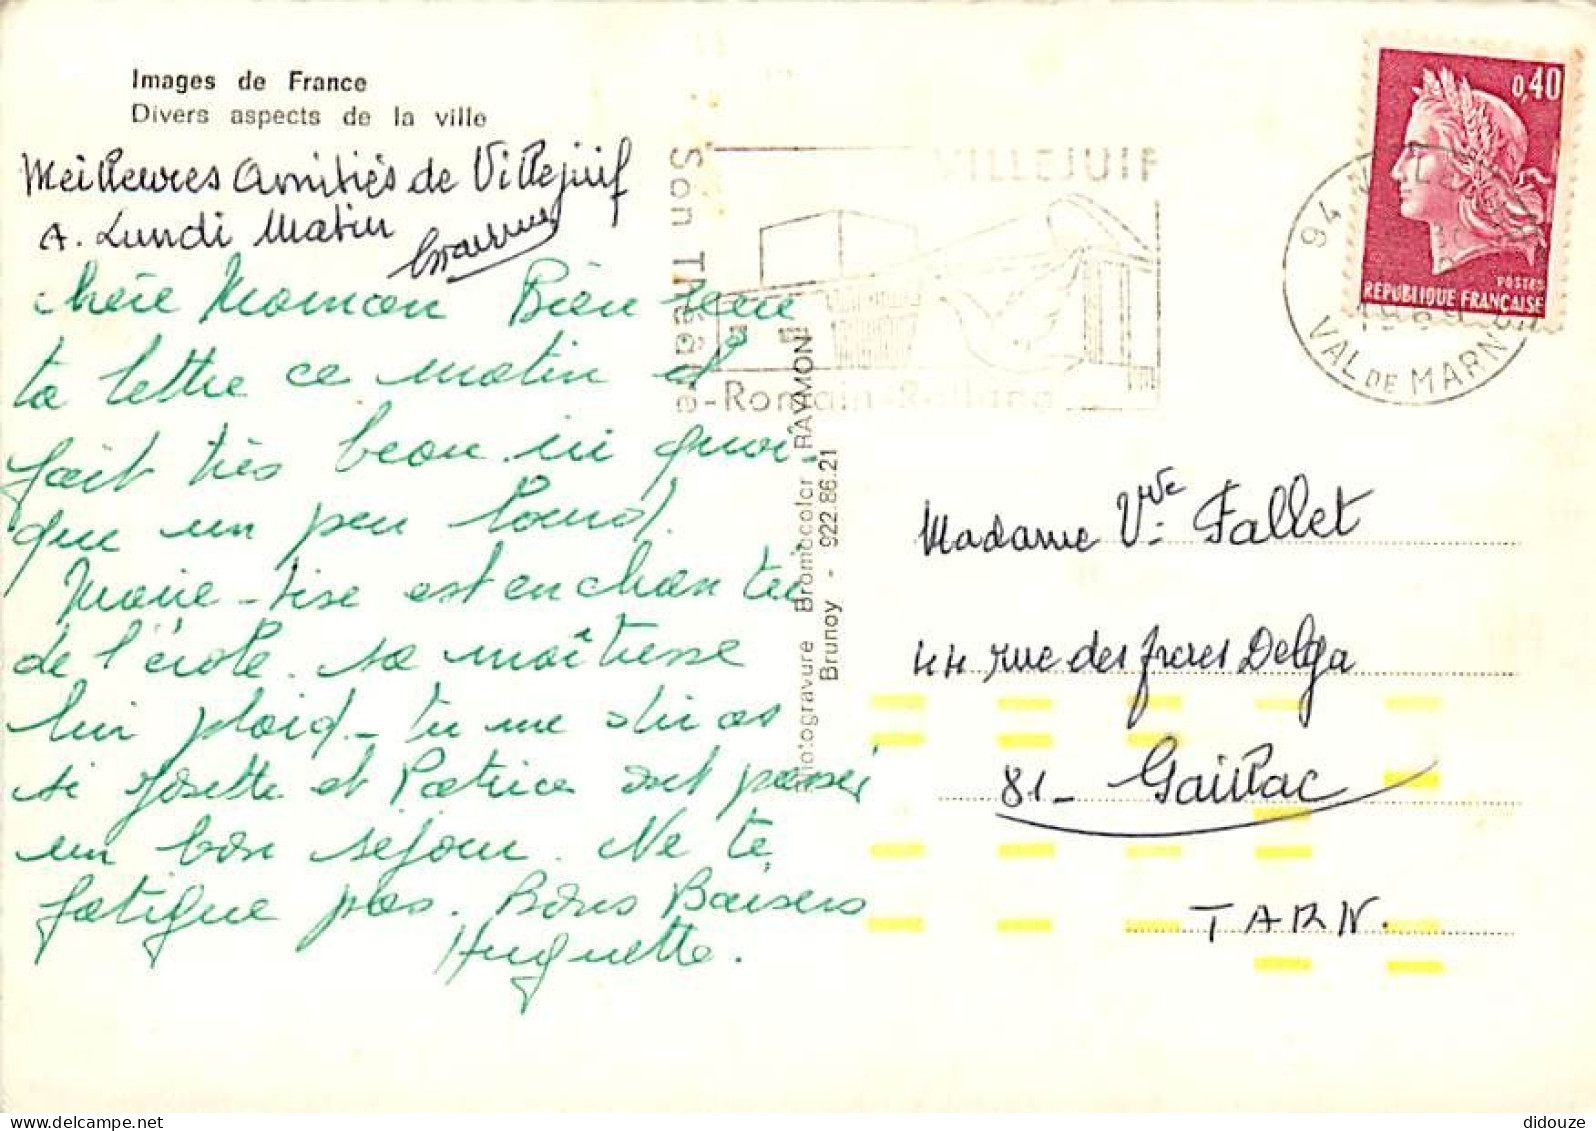 Images de France
Divers aspects de la ville
Meilleures Amitiés de Villejuif
A. Lundi Matin
Chère Maman Bien reçu
ta lettre ce matin il
fait très beau ici quoi
que un peu lourd.
Marie-Lise est enchantée
de l'école. sa maîtresse
lui plaid_ tu me diras
si Josette et Patrice ont passé
un bon séjour. Ne te
fatigue pas. Bons Baisers
Huguette.
Photogravure Bromocolor RAYMON
Brunoy - 922.86.21
VILLEJUIF
Son Théâtre
-Romain-Rolland
0,40
POSTES
REPUBLIQUE FRANÇAISE
94
1969
VAL DE MARNE
Madame Vve Fallet
44 rue des freres Delga
81_ Gaillac
TARN.
didouze